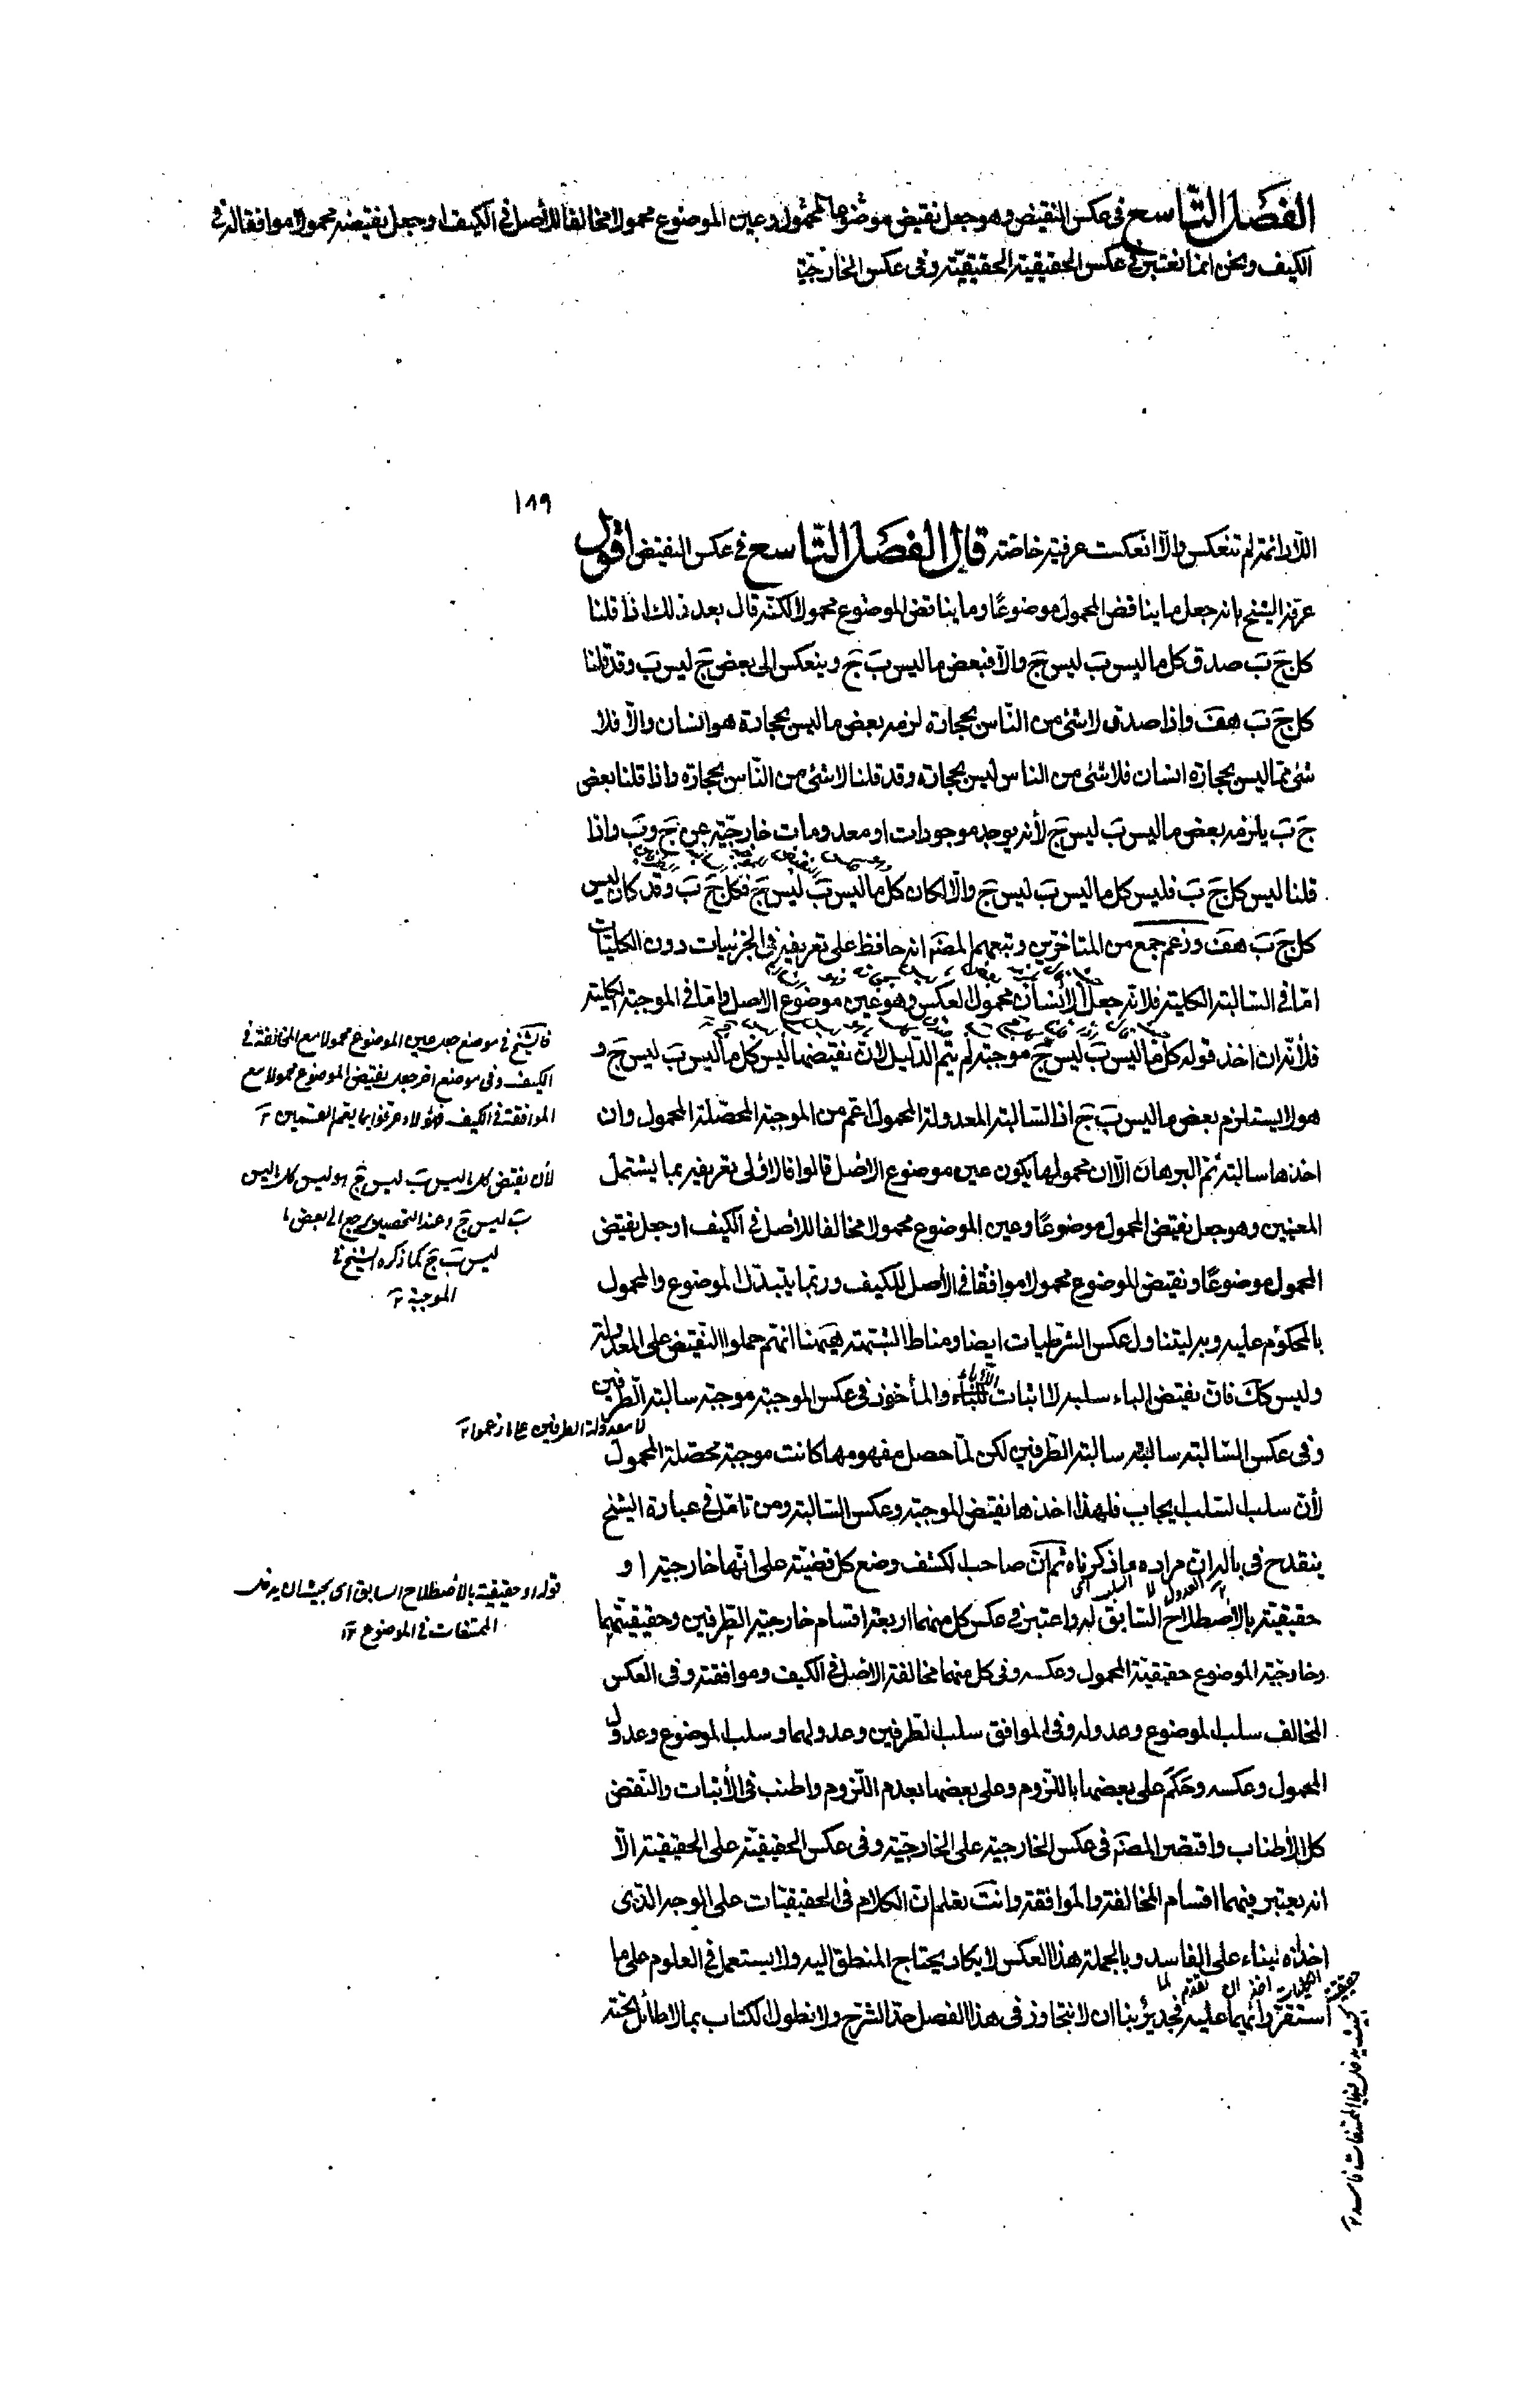 الفصل التاسع في عكس النقيض وهو جعل نقيض المحمول موضوعا وعين الموضوع محمولا مخالفا للأصل في الكيف او جعل نقيضه محمولا موافقا له في
الكيف ونحن انما نعتبر في عكس الحقيقية الحقيقيّة وفي عكس الخارجيّة
١٨٩
اللادائمة لم تنعكس والّا انعكست عرفية خاصّة قال الفصل التّاسع في عكس النقيض اقول
عرّفه الشيخ بانه جعل ما يناقض المحمول موضوعًا وما يناقض الموضوع محمولا لكنّه قال بعد ذلك اذا قلنا
كل جَ بَ صدق كل ما ليس بَ ليس جَ والّا فبعض ما ليس بَ جَ وينعكس الى بعض جَ ليس بَ وقد قلنا
كل جَ بَ هف واذا صدق لا شئ من النّاس بحجارة لزمه بعض ما ليس بحجارة هو انسان والّا فلا
شئ ممّا ليس بحجارة انسان فلا شئ من الناس ليس بحجارة وقد قلنا لا شئ من النّاس بحجارة واذا قلنا بعض
جَ بَ يلزمه بعض ما ليس بَ ليس جَ لأنه يوجد موجودات او معدومات خارجيّة عن جَ وبَ واذا
قلنا ليس كل جَ بَ فليس كل ما ليس بَ ليس جَ والّا لكان كل ما ليس بَ ليس جَ فكل جَ بَ وقد كان ليس
كل جَ بَ هف وزعم جمع من المتاخرين وتبعهم المصَ انه حافظ على تعريفه في الجزئيات دون الكليّات
امّا في السّالبة الكلية فلانه جعل الأنسان محمول العكس وهو عين موضوع الاصل وامّا في الموجبة الكلية
فلأنّه ان اخذ قوله كل ما ليس بَ ليس جَ موجبة لم يتم الدّليل لانّ نقيضها ليس كل ما ليس بَ ليس جَ و
هو لا يستلزم بعض ما ليس بَ جَ اذ السّالبة المعدولة المحمول اعمّ من الموجبة المحصّلة المحمول وان
اخذها سالبة تمّ البرهان الّا ان محمولها يكون عين موضوع الاصل قالوا فالاولى تعريفه بما يشتمل
المعنيين وهو جعل نقيض المحمول موضوعًا وعين الموضوع محمولا مخالفا للاصل في الكيف او جعل نقيض
المحمول موضوعًا ونقيض الموضوع محمولا موافقا في الأصل للكيف وربّما يتبدّل الموضوع والمحمول
بالمحكوم عليه وبه ليتناول عكس الشرطيات ايضا ومناط الشبهة هيهنا انّهم حملوا النقيض على المعدولة
وليس كك فانّ نقيض الباء سلبه لا اثبات اللّاباء والمأخوذ في عكس الموجبة موجبة سالبة الطّرفين
لا معدولة الطرفين على ما زعموا
وفي عكس السّالبة سالبة سالبة الطّرفين لكن لمّا حصل مفهومها كانت موجبة محصّلة المحمول
لأنّ سلب السّلب ايجاب فلهذا اخذها نقيض الموجبة وعكس السّالبة ومن تامّل في عبارة الشيخ
ينقدح في باله انّ مراده ما ذكرناه ثم انّ صاحب الكشف وضع كل قضيّة على انّها خارجيّة او
حقيقيّة بالأصطلاح السّابق له واعتبر في عكس كل منهما اربعة اقسام خارجيّة الطّرفين وحقيقيّتهما
وخارجيّة الموضوع حقيقيّة المحمول وعكسه وفي كل منهما مخالفة الاصل في الكيف وموافقته وفي العكس
المخالف سلب الموضوع وعدوله وفي الموافق سلب الطّرفين وعدولهما وسلب الموضوع وعدول
المحمول وعكسه وحَكَم على بعضها باللّزوم وعلى بعضها بعدم اللّزوم واطنب في الأثبات والنّقض
كل الأطناب واقتصر المصَ في عكس الخارجيّة على الخارجيّة وفي عكس الحقيقيّة على الحقيقيّة الّا
انه يعتبر فيهما اقسام المخالفة والموافقة وانت تعلم انّ الكلام في الحقيقيّات على الوجه الذّى
اخذاه بناء على الفاسد وبالجملة هذا العكس لا يكاد يحتاج المنطق اليه ولا يستعمل في العلوم على ما
استقرّ رأيهما عليه فجدير بنا ان لا نتجاوز في هذا الفصل حدّ الشرح ولا نطول الكتاب بما لا طائل تحته
فالشيخ في موضع جعل عين الموضوع محمولا مع المخالفة في
الكيف وفي موضع اخر جعل نقيض الموضوع محمولا مع
الموافقة في الكيف فهؤلاء عرّفوا بما يعم القسمين
لأن نقيض كل ما ليس بَ ليس جَ هو ليس كل ما ليس
بَ ليس جَ وعند التحصيل يرجع الى بعض ما
ليس بَ جَ كما ذكره الشيخ في
الموجبة
قوله او حقيقية بالأصطلاح السابق اى بحيث ان يدخل
الممتنعات في الموضوع
بحيث يدخل فيها الممتنعات فاسد